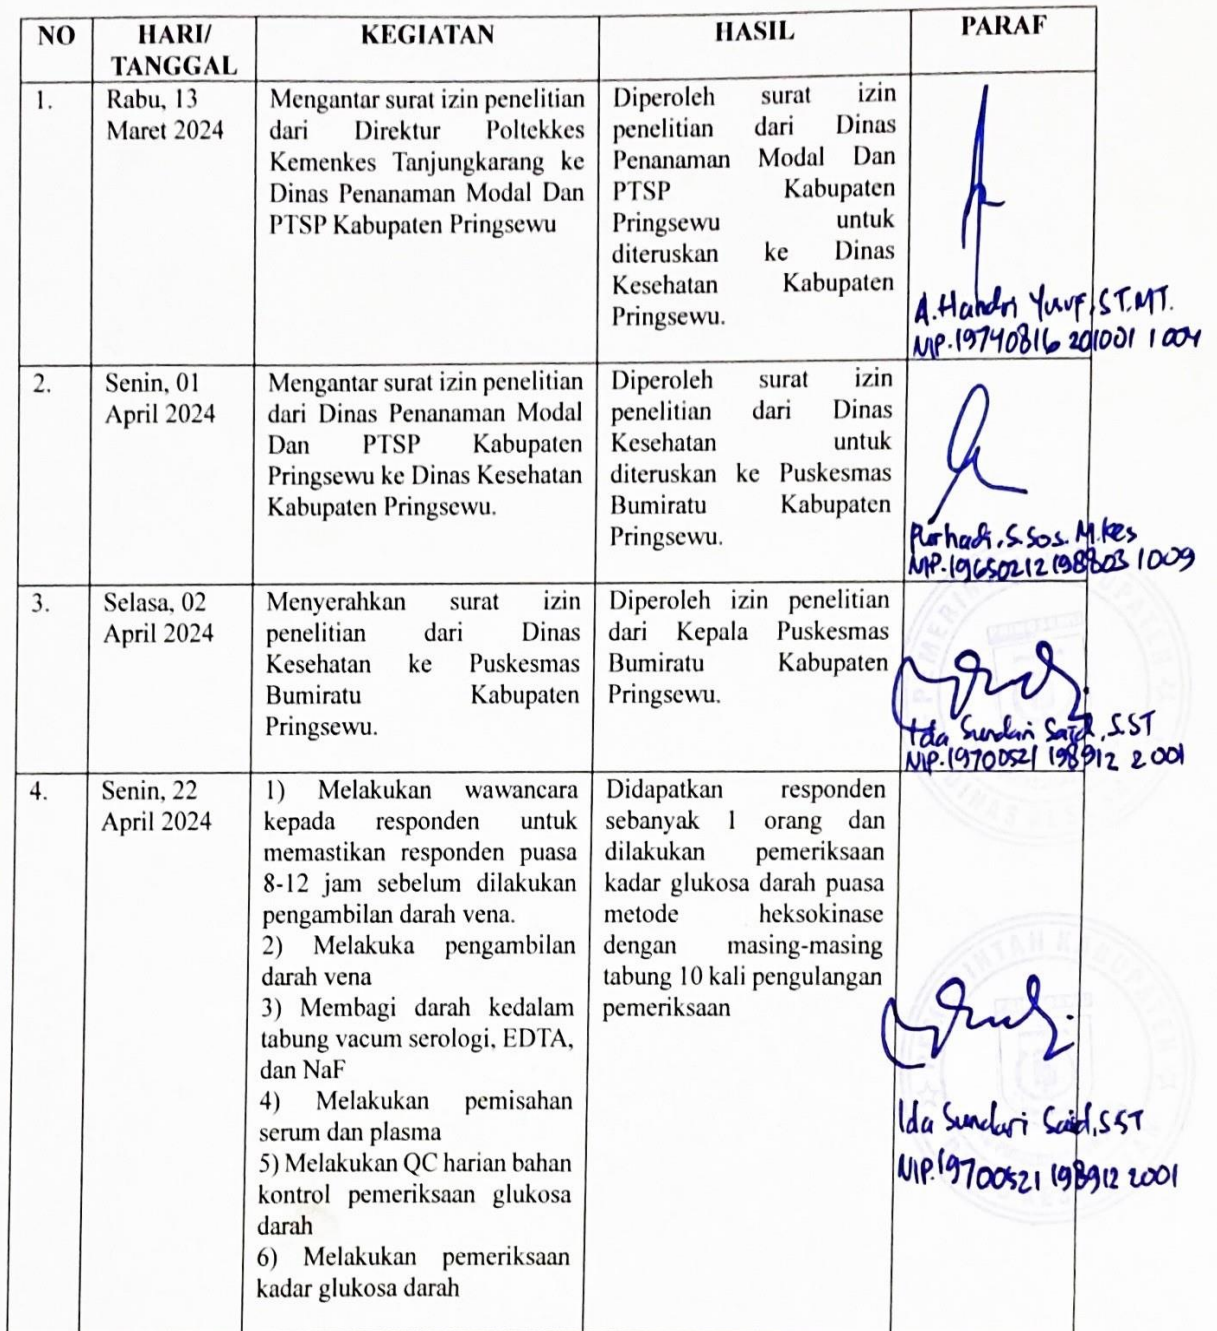 NO
HARI/
TANGGAL
KEGIATAN
HASIL
PARAF
1.
Rabu, 13
Maret 2024
Mengantar surat izin penelitian
dari Direktur Poltekkes
Kemenkes Tanjungkarang ke
Dinas Penanaman Modal Dan
PTSP Kabupaten Pringsewu
Diperoleh surat izin
penelitian dari Dinas
Penanaman Modal Dan
PTSP Kabupaten
Pringsewu untuk
diteruskan ke Dinas
Kesehatan Kabupaten
Pringsewu.
A. Handri Yusuf, ST.MT.
NIP.19740816 201001 1 004
2.
Senin, 01
April 2024
Mengantar surat izin penelitian
dari Dinas Penanaman Modal
Dan PTSP Kabupaten
Pringsewu ke Dinas Kesehatan
Kabupaten Pringsewu.
Diperoleh surat izin
penelitian dari Dinas
Kesehatan untuk
diteruskan ke Puskesmas
Bumiratu Kabupaten
Pringsewu.
Purhadi, S.Sos. M.Kes
NIP.19650212 198803 1009
3.
Selasa, 02
April 2024
Menyerahkan surat izin
penelitian dari Dinas
Kesehatan ke Puskesmas
Bumiratu Kabupaten
Pringsewu.
Diperoleh izin penelitian
dari Kepala Puskesmas
Bumiratu Kabupaten
Pringsewu.
Ida Sundari Said, S.ST
NIP.19700521 198912 2 001
4.
Senin, 22
April 2024
1) Melakukan wawancara
kepada responden untuk
memastikan responden puasa
8-12 jam sebelum dilakukan
pengambilan darah vena.
2) Melakuka pengambilan
darah vena
3) Membagi darah kedalam
tabung vacum serologi, EDTA,
dan NaF
4) Melakukan pemisahan
serum dan plasma
5) Melakukan QC harian bahan
kontrol pemeriksaan glukosa
darah
6) Melakukan pemeriksaan
kadar glukosa darah
Didapatkan responden
sebanyak 1 orang dan
dilakukan pemeriksaan
kadar glukosa darah puasa
metode heksokinase
dengan masing-masing
tabung 10 kali pengulangan
pemeriksaan
Ida Sundari Said, SST
NIP.19700521 198912 2001